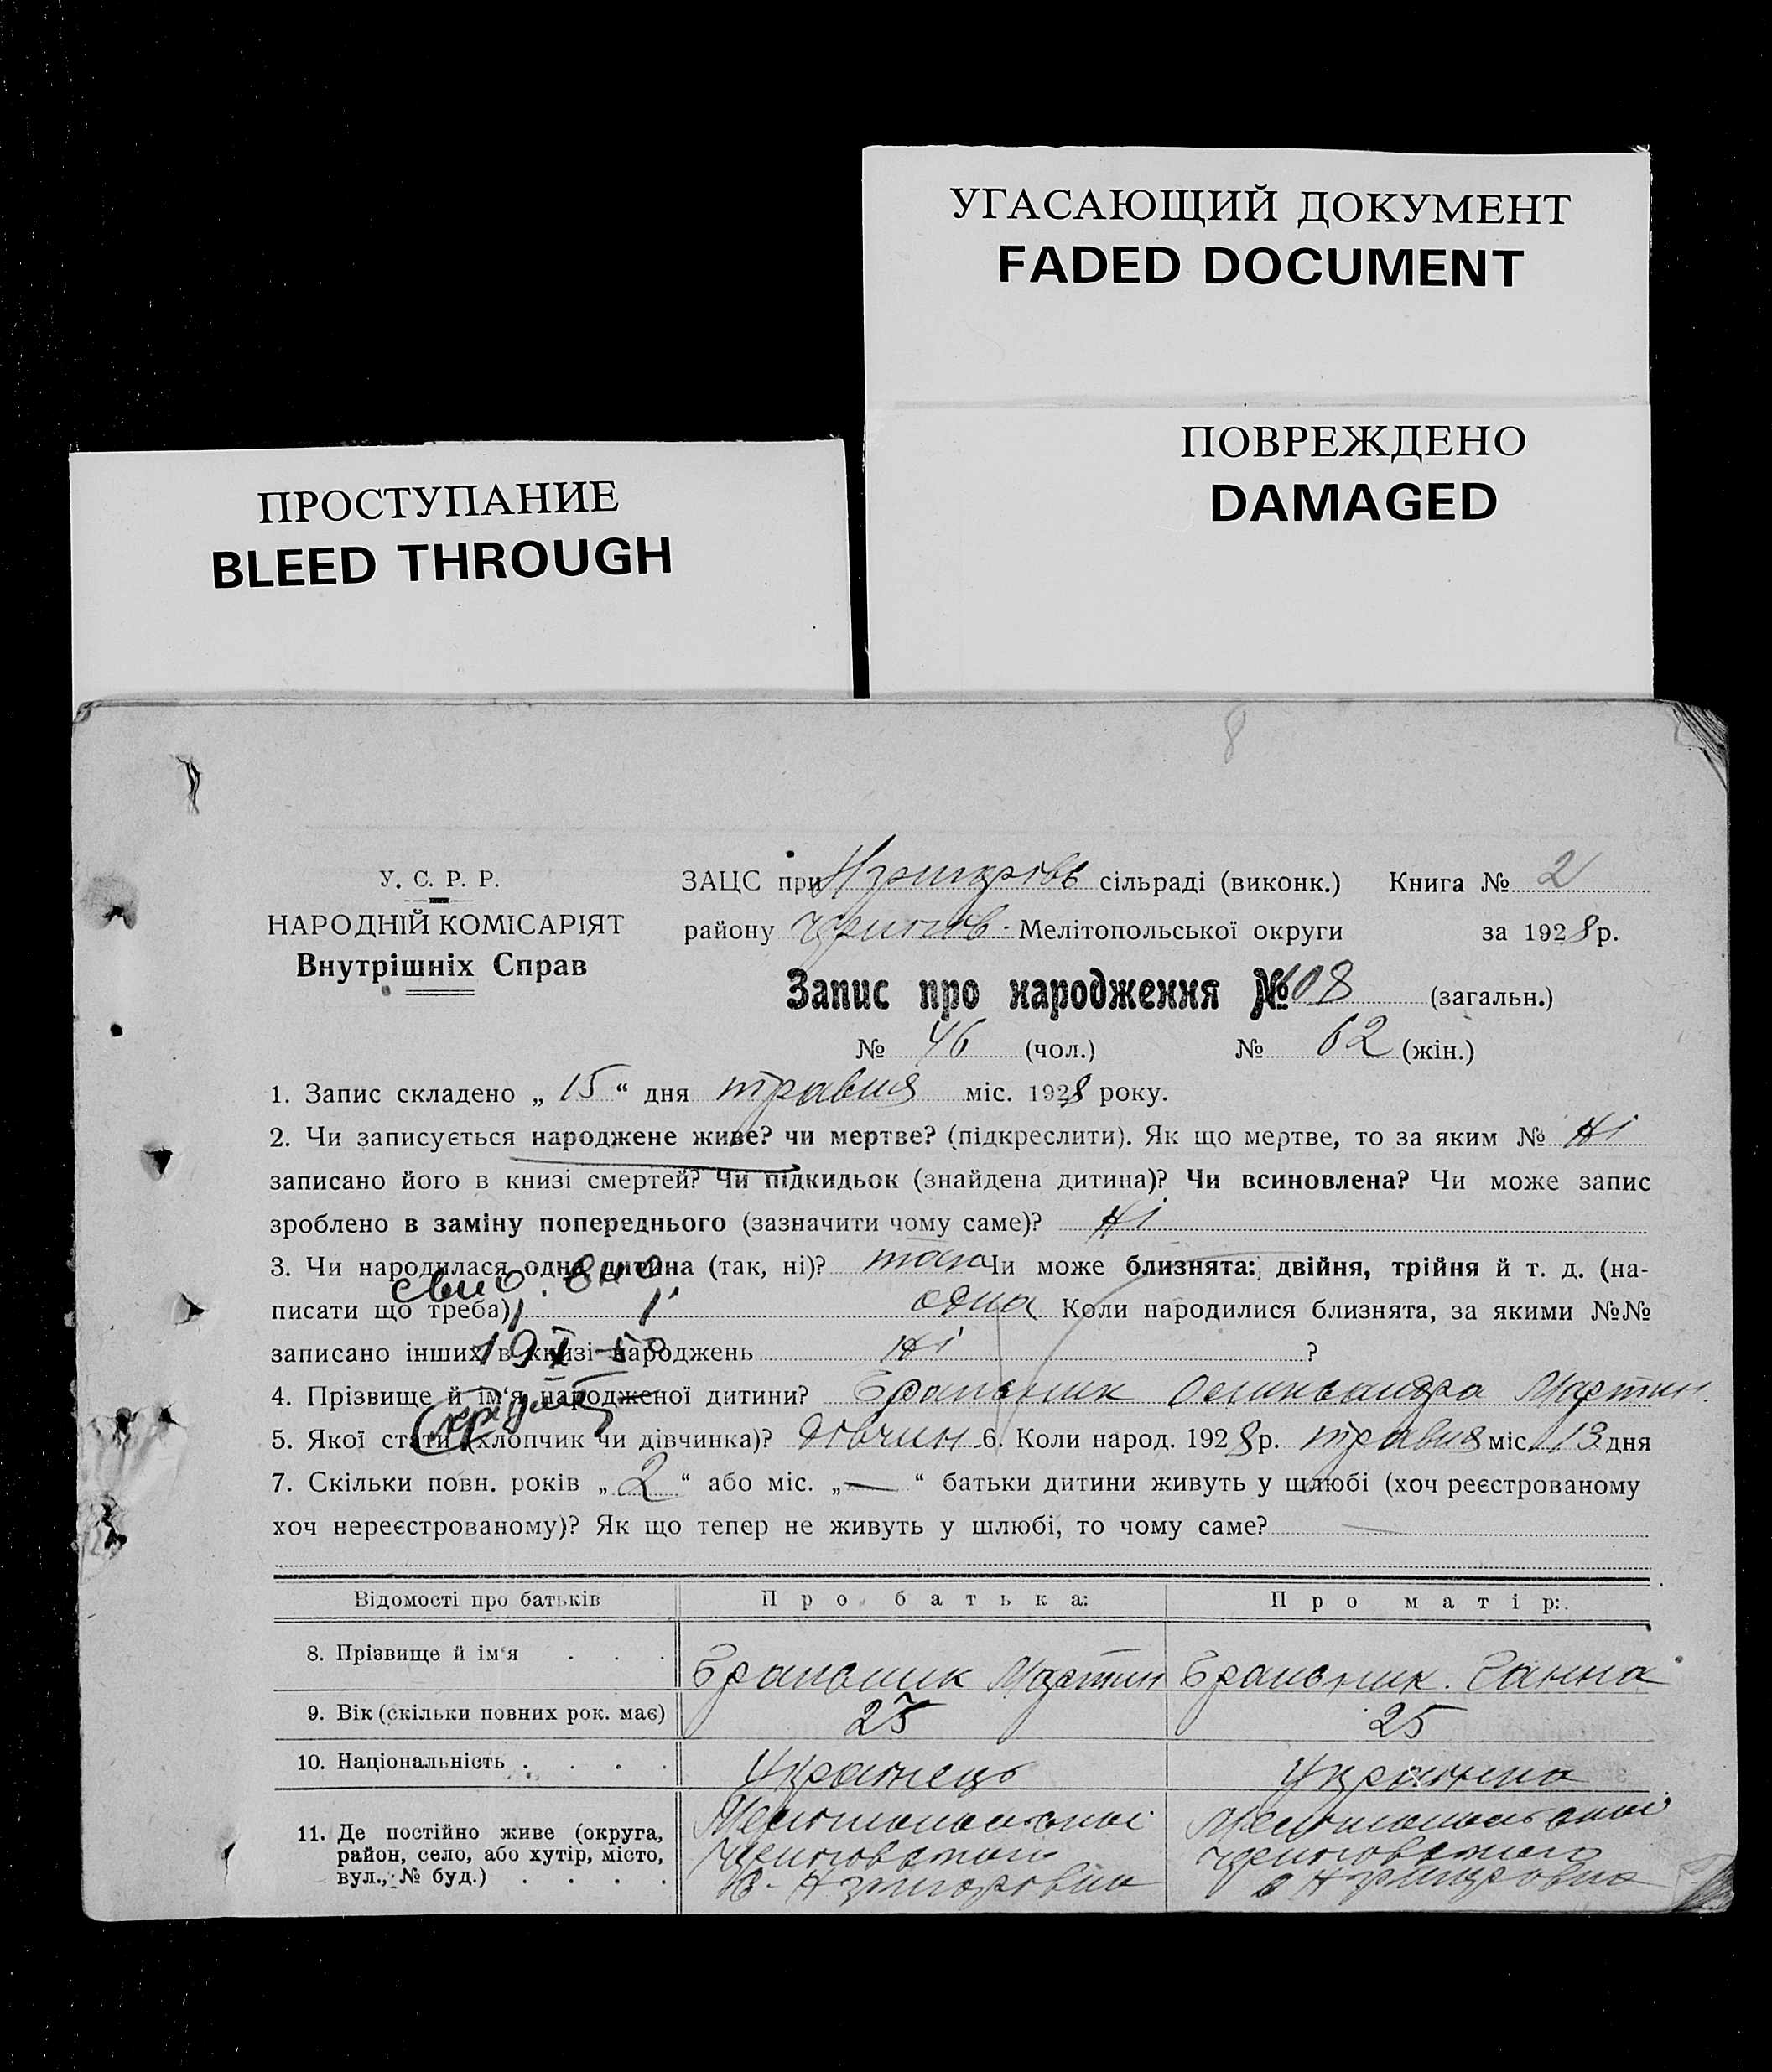 УГАСАЮЩИЙ ДОКУМЕНТ
FADED DOCUMENT
ПОВРЕЖДЕНО
DAMAGED
ПРОСТУПАНИЕ
BLEED THROUGH
8
У. С. Р. Р.
НАРОДНІЙ КОМІСАРІЯТ
Внутрішніх Справ
ЗАЦС при сільраді (виконк.) Книга № 2
району Мелітопольської округи за 1928 р.
Запис про народження № 108 (загальн.)
№ 46 (чол.) № 62 (жін.)
1. Запис складено „ 15 “ дня травня міс. 1928 року.
2. Чи записується народжене живе? чи мертве? (підкреслити). Як що мертве, то за яким № Ні
записано його в книзі смертей? Чи підкидьок (знайдена дитина)? Чи всиновлена? Чи може запис
зроблено в заміну попереднього (зазначити чому саме)? Ні
3. Чи народилася одна дитина (так, ні)? так Чи може близнята: двійня, трійня й т. д. (на-
писати що треба) одна Коли народилися близнята, за якими №№
записано інших в книзі народжень Ні ?
4. Прізвище й ім‘я народженої дитини? Олександра Мартин.
5. Якої стати (хлопчик чи дівчинка)? Дівчин 6. Коли народ. 1928 р. травня міс. 13 дня
7. Скільки повн. років „ 2 “ або міс. „ — “ батьки дитини живуть у шлюбі (хоч реєстрованому
хоч нереєстрованому)? Як що тепер не живуть у шлюбі, то чому саме? —
Відомості про батьків Про батька: Про матір:
8. Прізвище й ім‘я . . . Мартин Ганна
9. Вік (скільки повних рок. має) 25
10. Національність . . . . Українець Українка
11. Де постійно живе (округа,
район, село, або хутір, місто,
вул., № буд.) . . . .